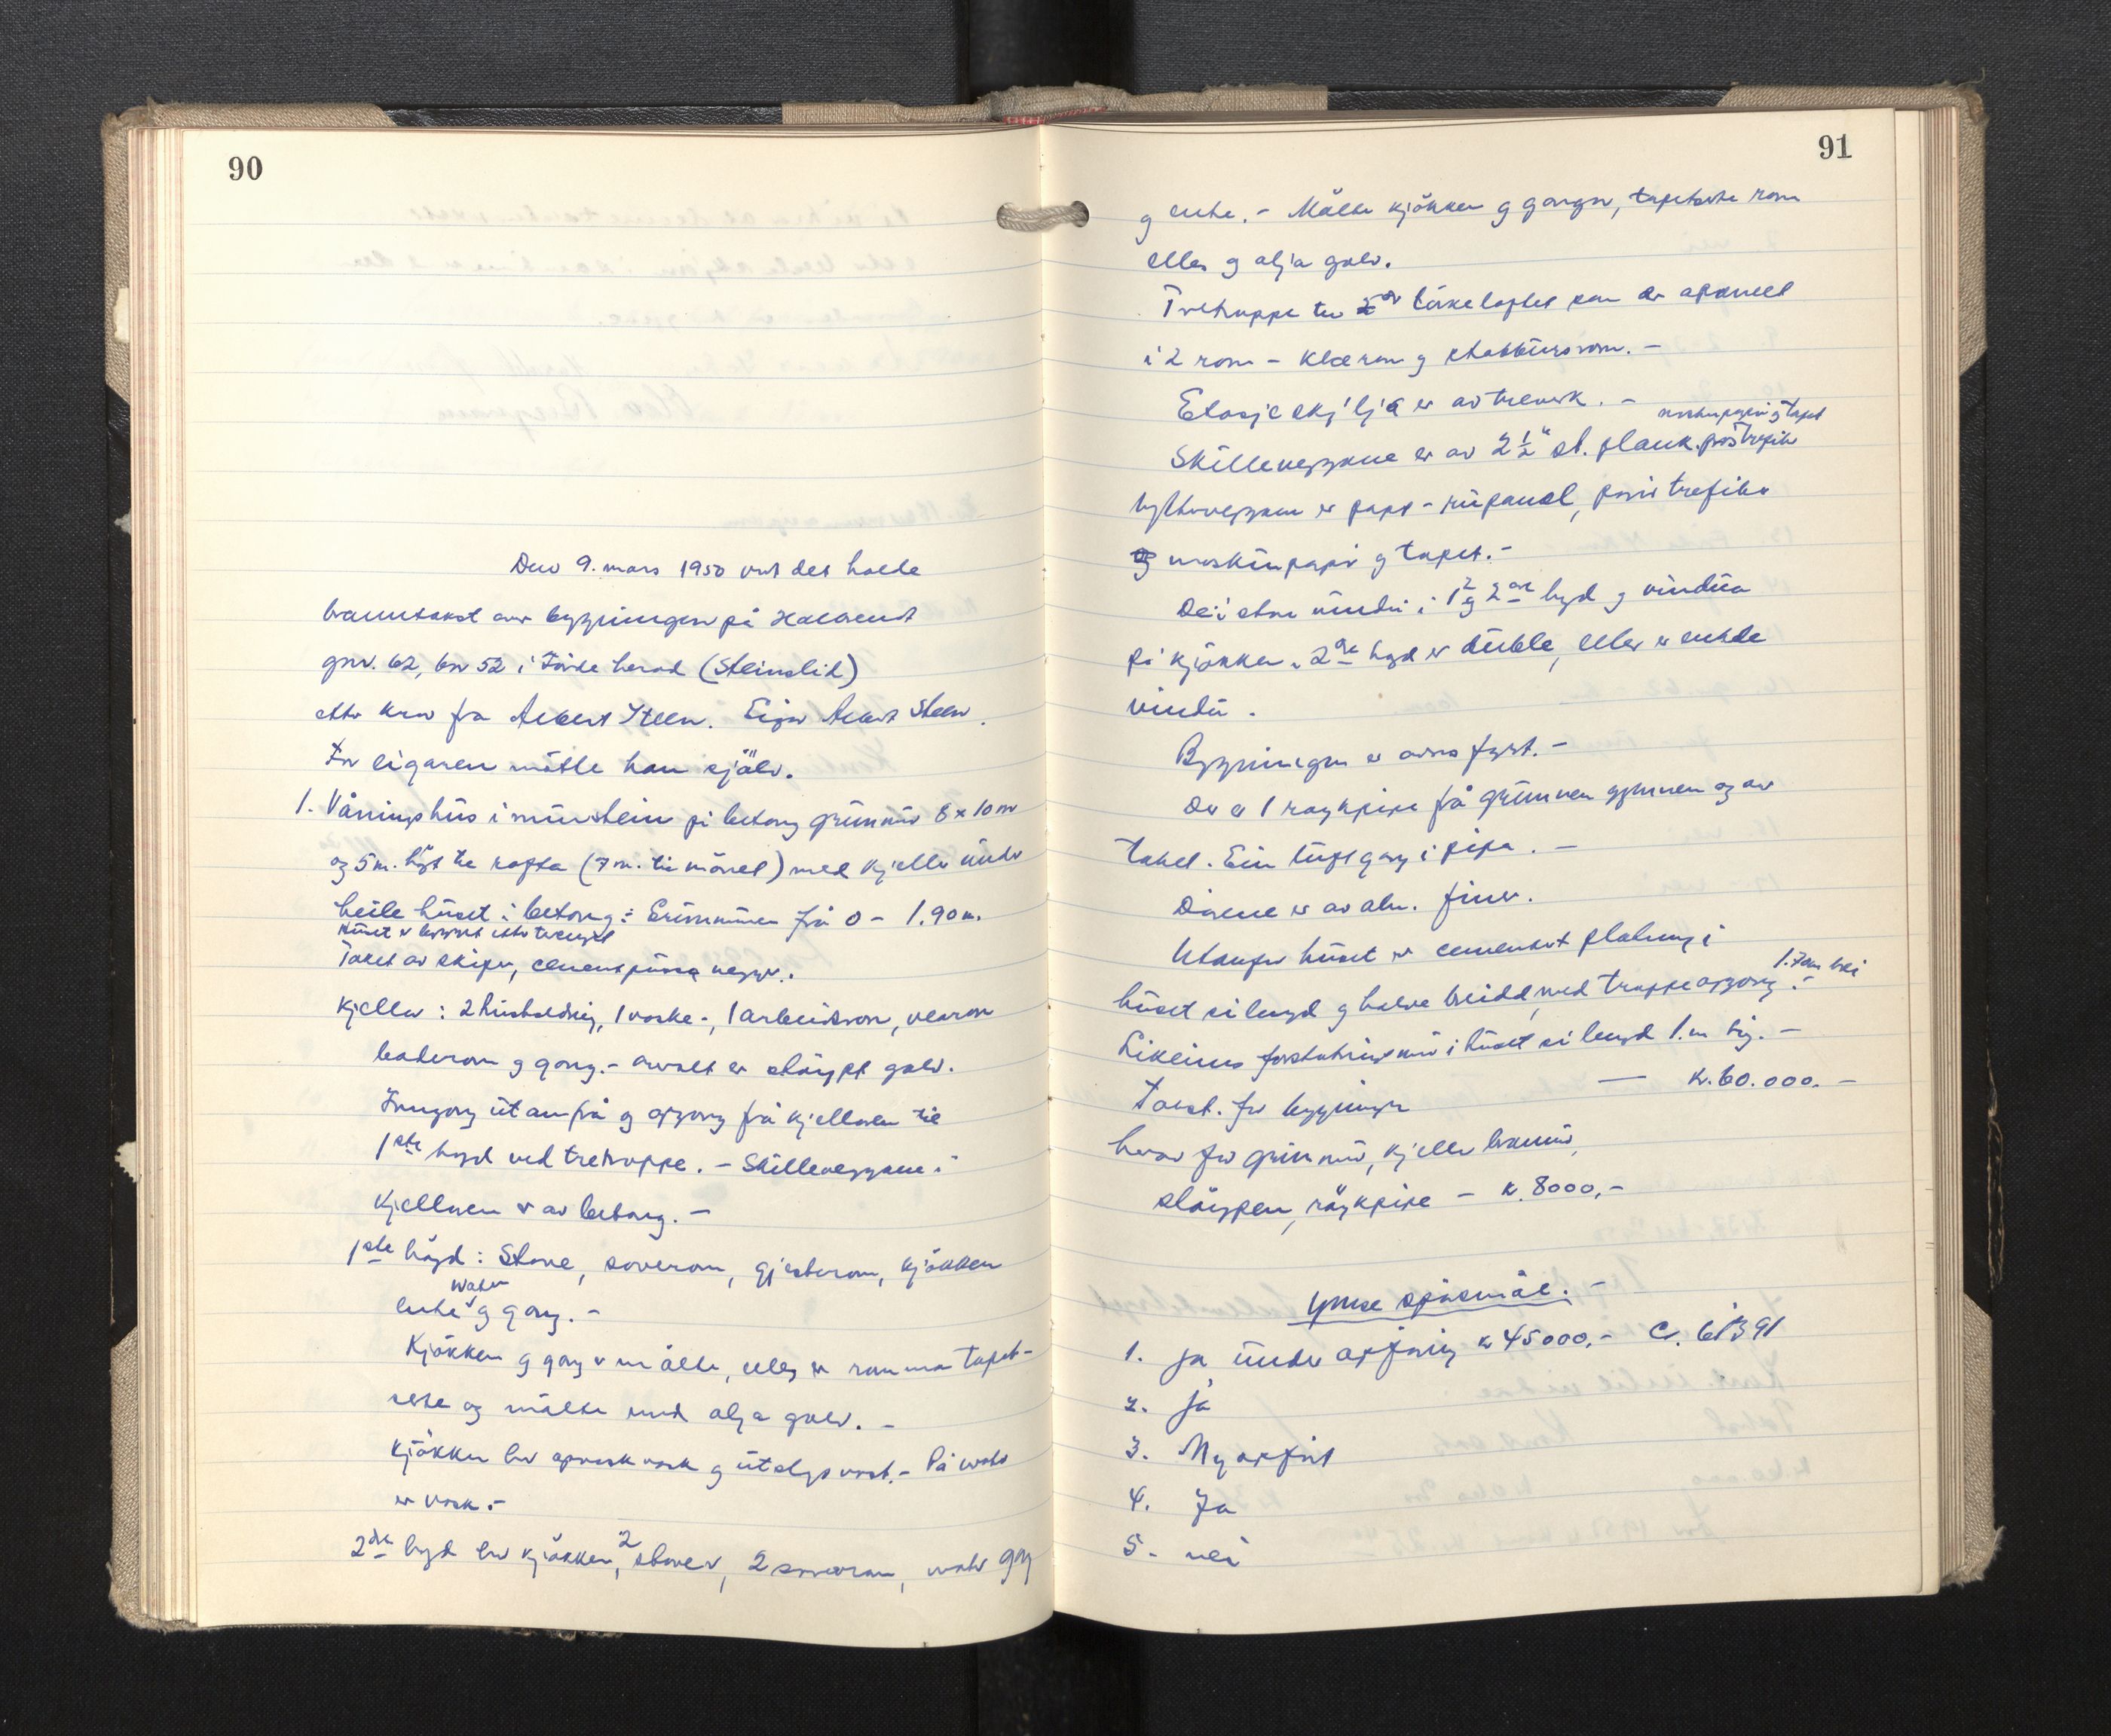 90
Den 9. mars 1950 vart det halde
branntakst over bygningen på Halbrend
gnr. 62, bnr 52 i Førde herad (Steinslid)
etter krav frå Albert Steen. Eigar Albert Steen.
For eigaren møtte han sjölv.
1. Våningshus i murstein på betong grunnmur 8 x 10 m
og 5 m. högt til rafta (7 m. til mönet) med kjeller under
heile huset i betong: Grunnmuren frå 0 - 1.90 m.
Huset er bygget etter
Taket av skifer, cementpussa vegger.
Kjeller: 2 hushaldning, 1 vaske-, 1 arbeidsrom, vearom
baderom g gang. - overalt er støypt golv.
Inngang utanfrå g oppgang frå kjellaren til
1ste høgd ved tretrappe. - Skilleveggane i
kjellaren er av betong. -
1ste høgd: Stove, soverom, gjesterom, kjökken
water
entre g gang. -
Kjökken g gang er målte, elles er romma tapet-
serte og målte med olja golv. -
Kjökken har oppvaskvask g utslagsvask. - På water
er vask. -
2dre høgd har kjökken, 2 stover, 2 soverom, water gang
91
g entre. - Målte kjökken g ganger, tapetserte rom
elles g olja golv.
Tretrappe til törkeloftet som er oppdeelt
i 2 rom - klærom g stabbursrom. -
Etasjeskilja er av treverk. -
maskinpapir g tapet
Skilleveggane er av 2 1/2" st. plank. porøs trefiber
Ytterveggane er papp - rupanel, porøs trefiber
g maskinpapir g tapet. -
Dei store vindu i 1 g 2are høgd g vindua
på kjökken i 2are høgd er duble, elles er enkle
vindu.
Bygningen er oversfyrt. -
Der er 1 røykpipe frå grunnen gjennom og over
taket. Ein luftgang i pipa. -
Dørene er av alm. finer.
Utanfor huset er cementert platting i
1.70 m brei
huset si lengd g halve breidd, med trappeoppgang. -
Likeins forstøtningsmur i huset si lengd 1. m høg. -
Takst. for bygningen — kr. 60.000. -
herav for grunnmur, kjeller brannmur,
støypen, røykpipe - kr. 8000,-
Ymse spörsmål. -
1. Ja under oppføring kr 45000.- C. 61391
2. Ja
3. Ny oppført
4. Ja
5. nei